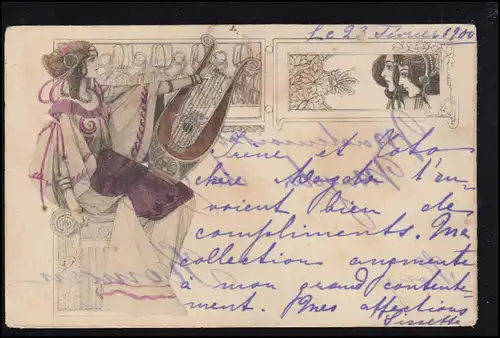 Le 23 Février 1900
Irène et Toto
chère Magda t'en-
voient bien des
compliments. Ma
collection augmente
à mon grand contente-
ment. Mes affections
Lissette